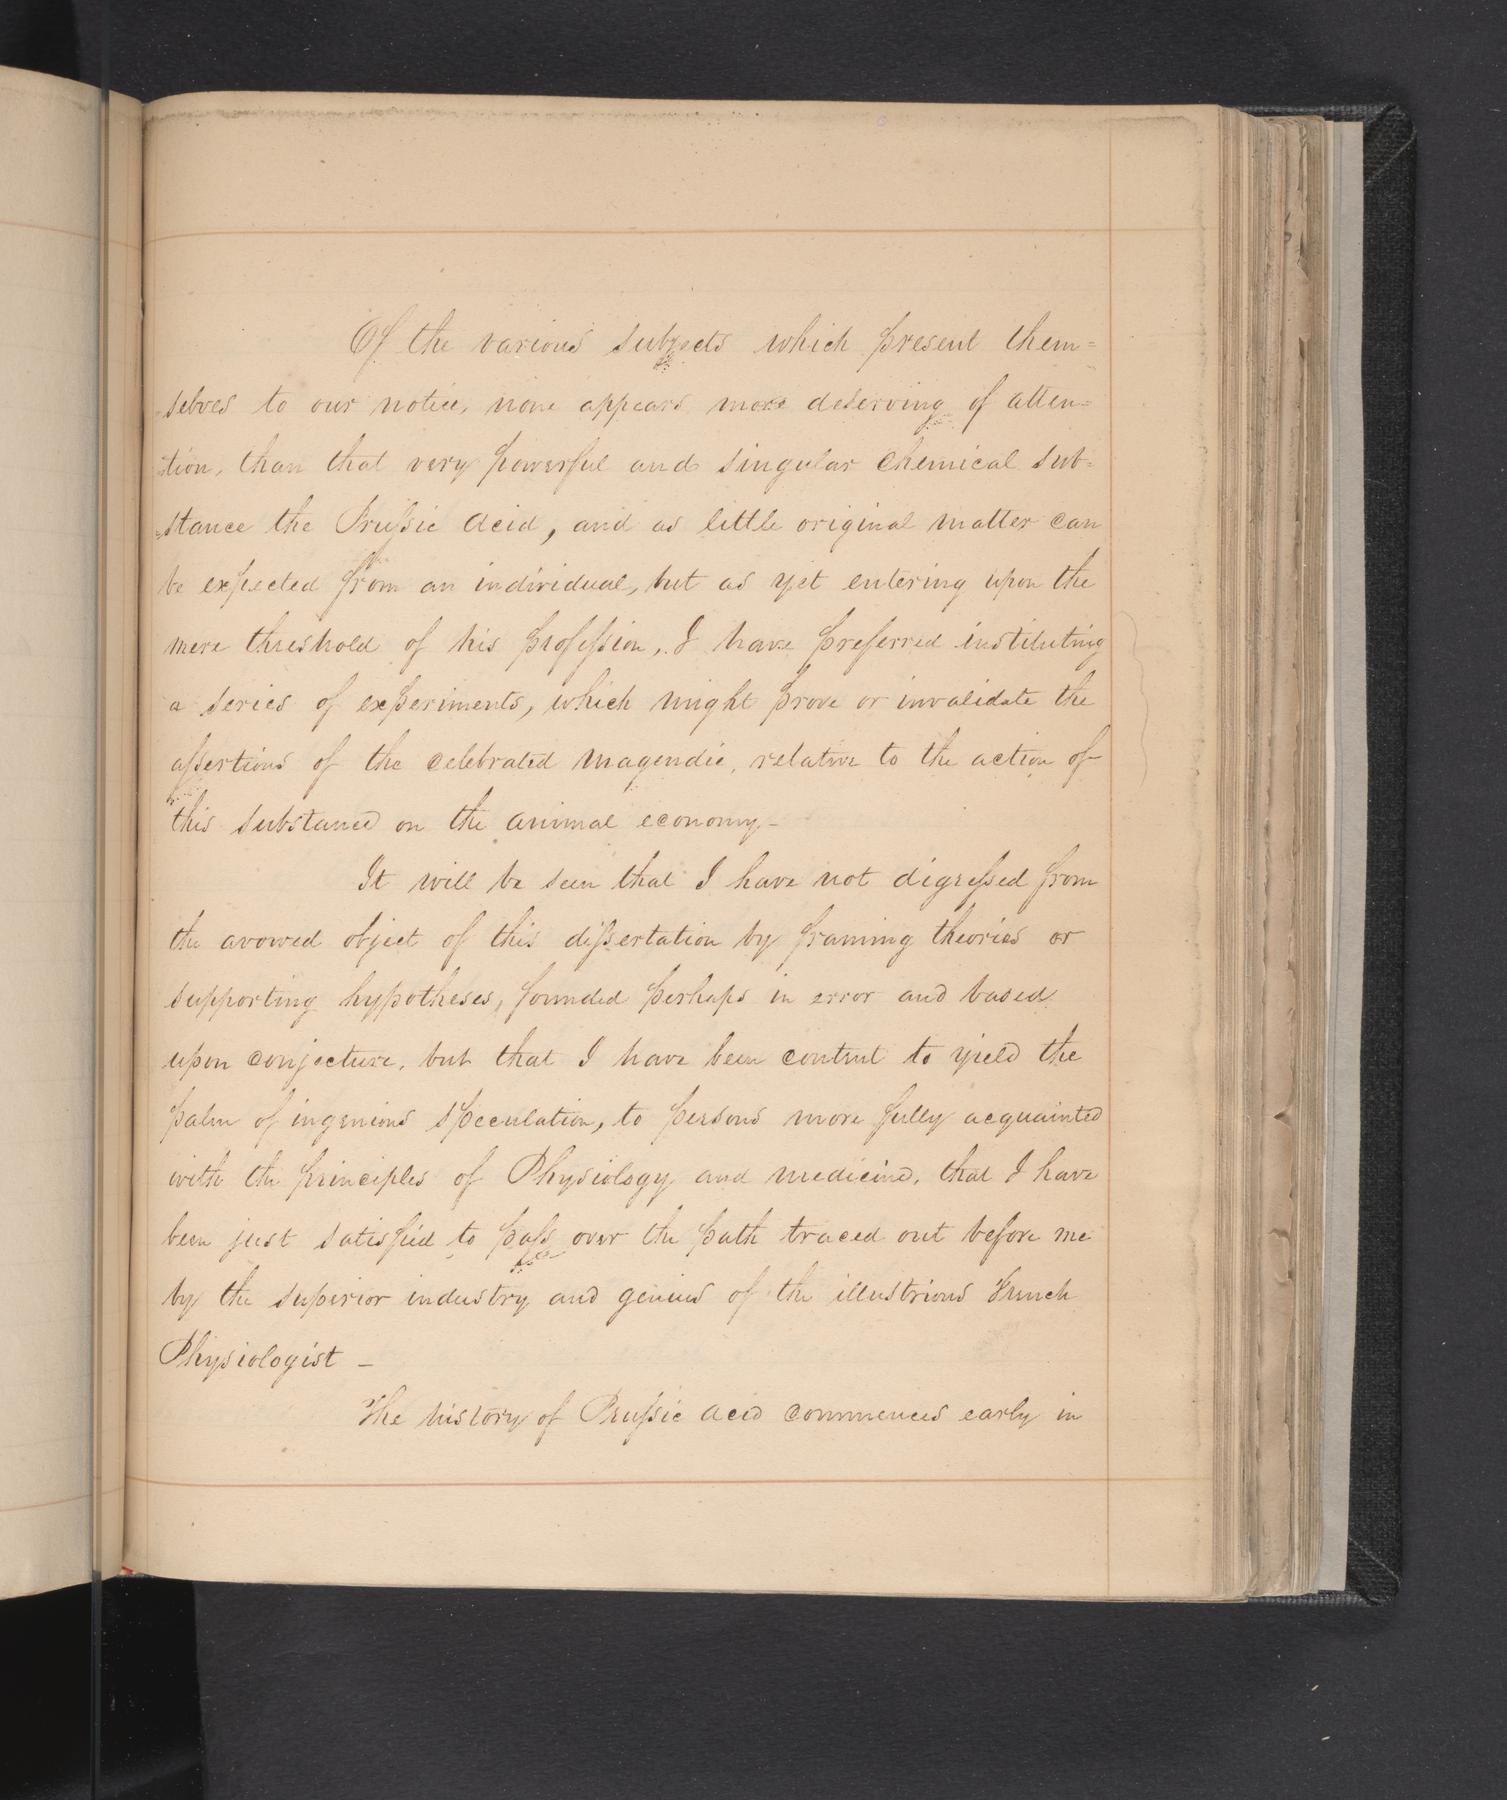 Of the various subjects which present them=
selves to our notice, none appears more deserving of atten=
=tion, than that very powerful and singular Chemical sub=
=stance the Prussic Acid, and as little original matter can
be expected from an individual, but as yet entering upon the
mere threshold of his profession, I have preferred instituting
a series of experiments, which might prove or invalidate the
assertions of the celebrated Magendie, relative to the action of
this substance on the animal economy –
It will be seen that I have not digressed from
the avowed object of this dissertation by framing theories or
supporting hypotheses, founded perhaps in error and based
upon conjecture, but that I have been content to yield the
palm of ingenious speculation, to persons more fully acquainted
with the principles of Physiology and medicine, that I have
been just satisfied to pass over the path traced out before me
by the superior industry and genius of the illustrious French
Physiologist –
The history of Prussic Acid commences early in